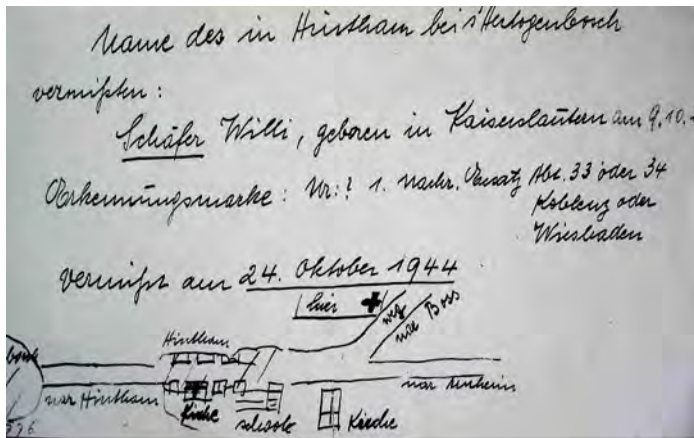 Name des in Hintham bei s'Hertogenbosch
vermißten:
Schäfer Willi, geboren in Kaiserslautern am 9.10.
Erkennungsmarke: Nr.? 1. Nachr. Ersatz Abt. 33 oder 34
Koblenz oder
Wiesbaden
Vermißt am 24. Oktober 1944
hier
weg
Hintham
nar Hintham
Kirche
Kirche